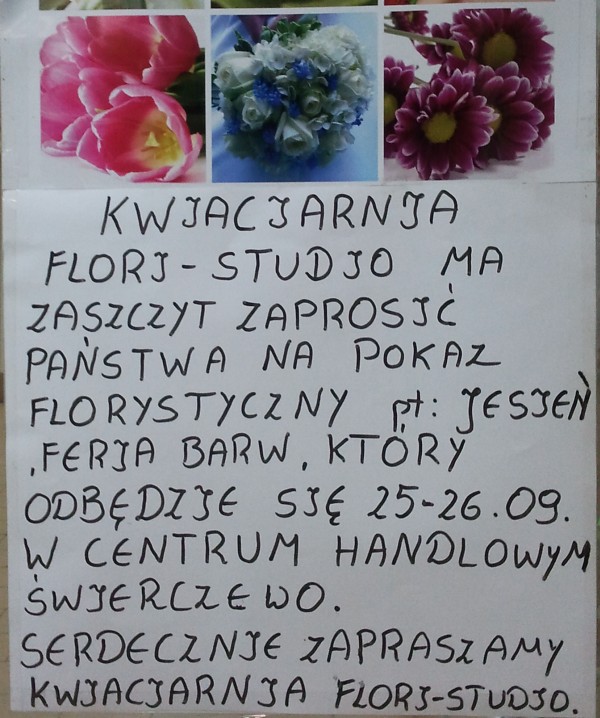 KWIACIARNIA
FLORI-STUDIO MA
ZASZCZYT ZAPROSIĆ
PAŃSTWA NA POKAZ
FLORYSTYCZNY pt: JESIEŃ
,FERIA BARW, KTÓRY
ODBĘDZIE SIĘ 25-26.09.
W CENTRUM HANDLOWYM
ŚWIERCZEWO.
SERDECZNIE ZAPRASZAMY
KWIACIARNIA FLORI-STUDIO.